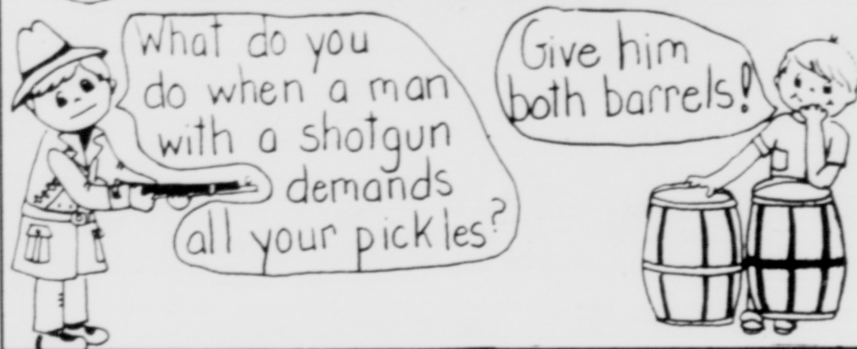 What do you
do when a man
with a shotgun
demands
all your pickles?
Give him
both barrels!